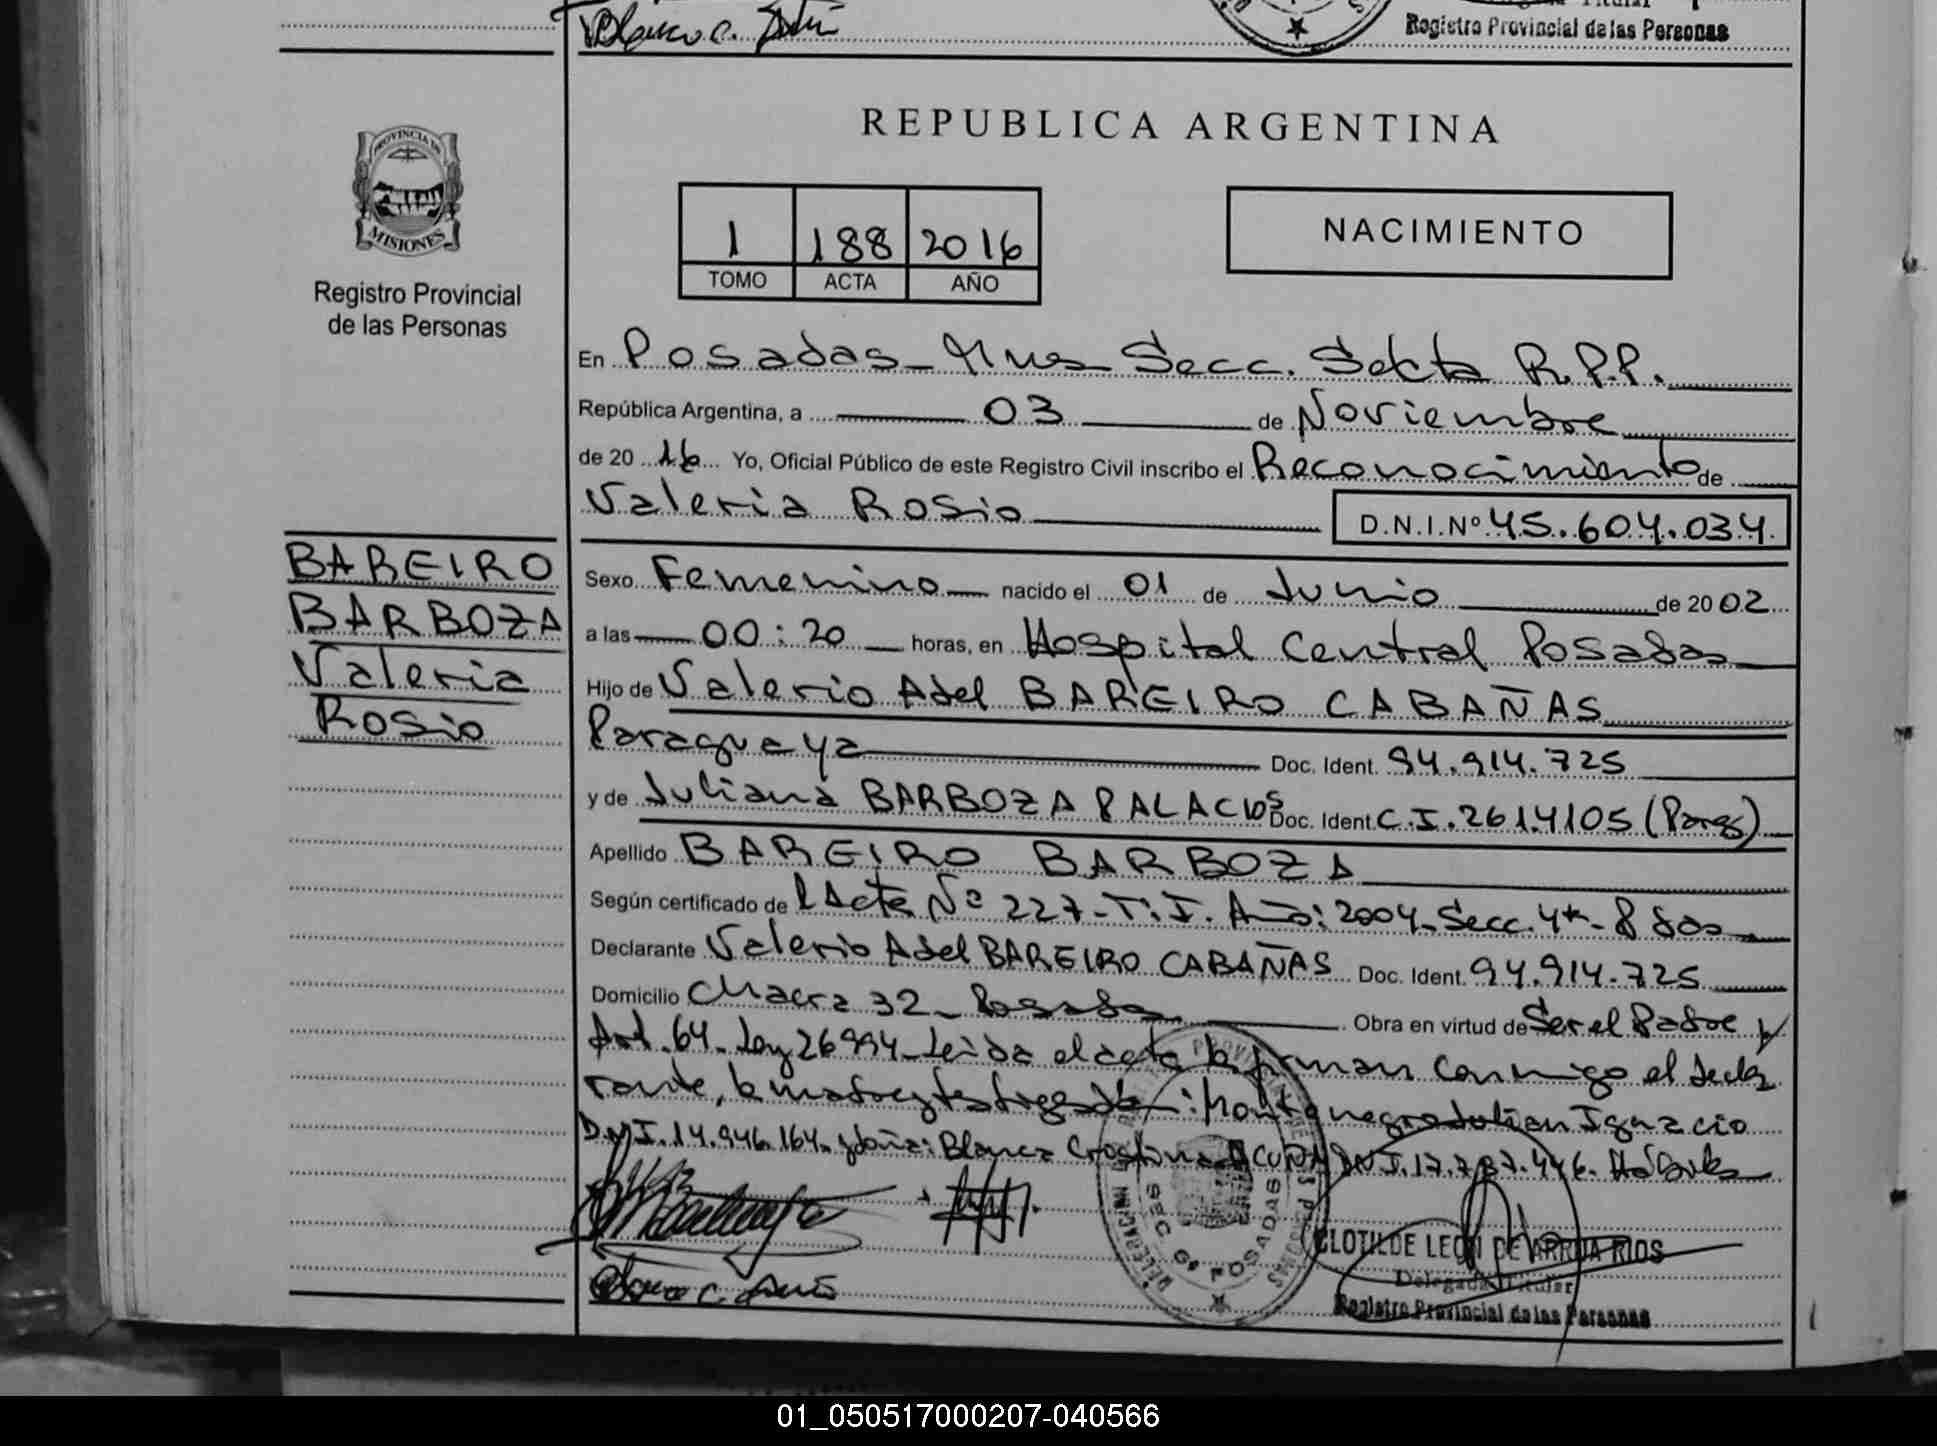 Blanca C.
Registro Provincial de las Personas
PROVINCIA DE
MISIONES
Registro Provincial
de las Personas
REPUBLICA ARGENTINA
1 188 2016
TOMO ACTA AÑO
NACIMIENTO
En Posadas - Mnes Secc. Sexta R.P.P.
República Argentina, a 03 de Noviembre
de 20 16 Yo, Oficial Público de este Registro Civil inscribo el Reconocimiento de
Valeria Rosio D.N.I.Nº 45.604.034
BAREIRO
BARBOZA
Valeria
Rosio
Sexo Femenino nacido el 01 de Junio de 20 02
a las 00:20 horas, en Hospital Central Posadas
Hijo de Valerio Adel BAREIRO CABAÑAS
Paraguaya Doc. Ident. 94.914.725
y de Juliana BARBOZA PALACIOS Doc. Ident. C.I. 2614105 (Parag)
Apellido BAREIRO BARBOZA
Según certificado de Acta Nº 227 - T: I. Año: 2004 - Secc. 4ta - Pdas
Declarante Valerio Adel BAREIRO CABAÑAS Doc. Ident. 94.914.725
Domicilio Chacra 32 - Posadas Obra en virtud de Ser el Padre y
Art. 64 - Ley 26994 - Leida el acta la firman conmigo el decla
rante, la madre y testigos Montenegro Julian Ignacio
D.N.I. 14.946.164 - y doña: Blanca Cristina ACUÑA DNI. 17.787.446.
DELEGACION SECC 6ª POSADAS
CLOTILDE LEON DE ARRUA RIOS
Delegada Titular
Registro Provincial de las Personas
Blanca C.
01_050517000207-040566